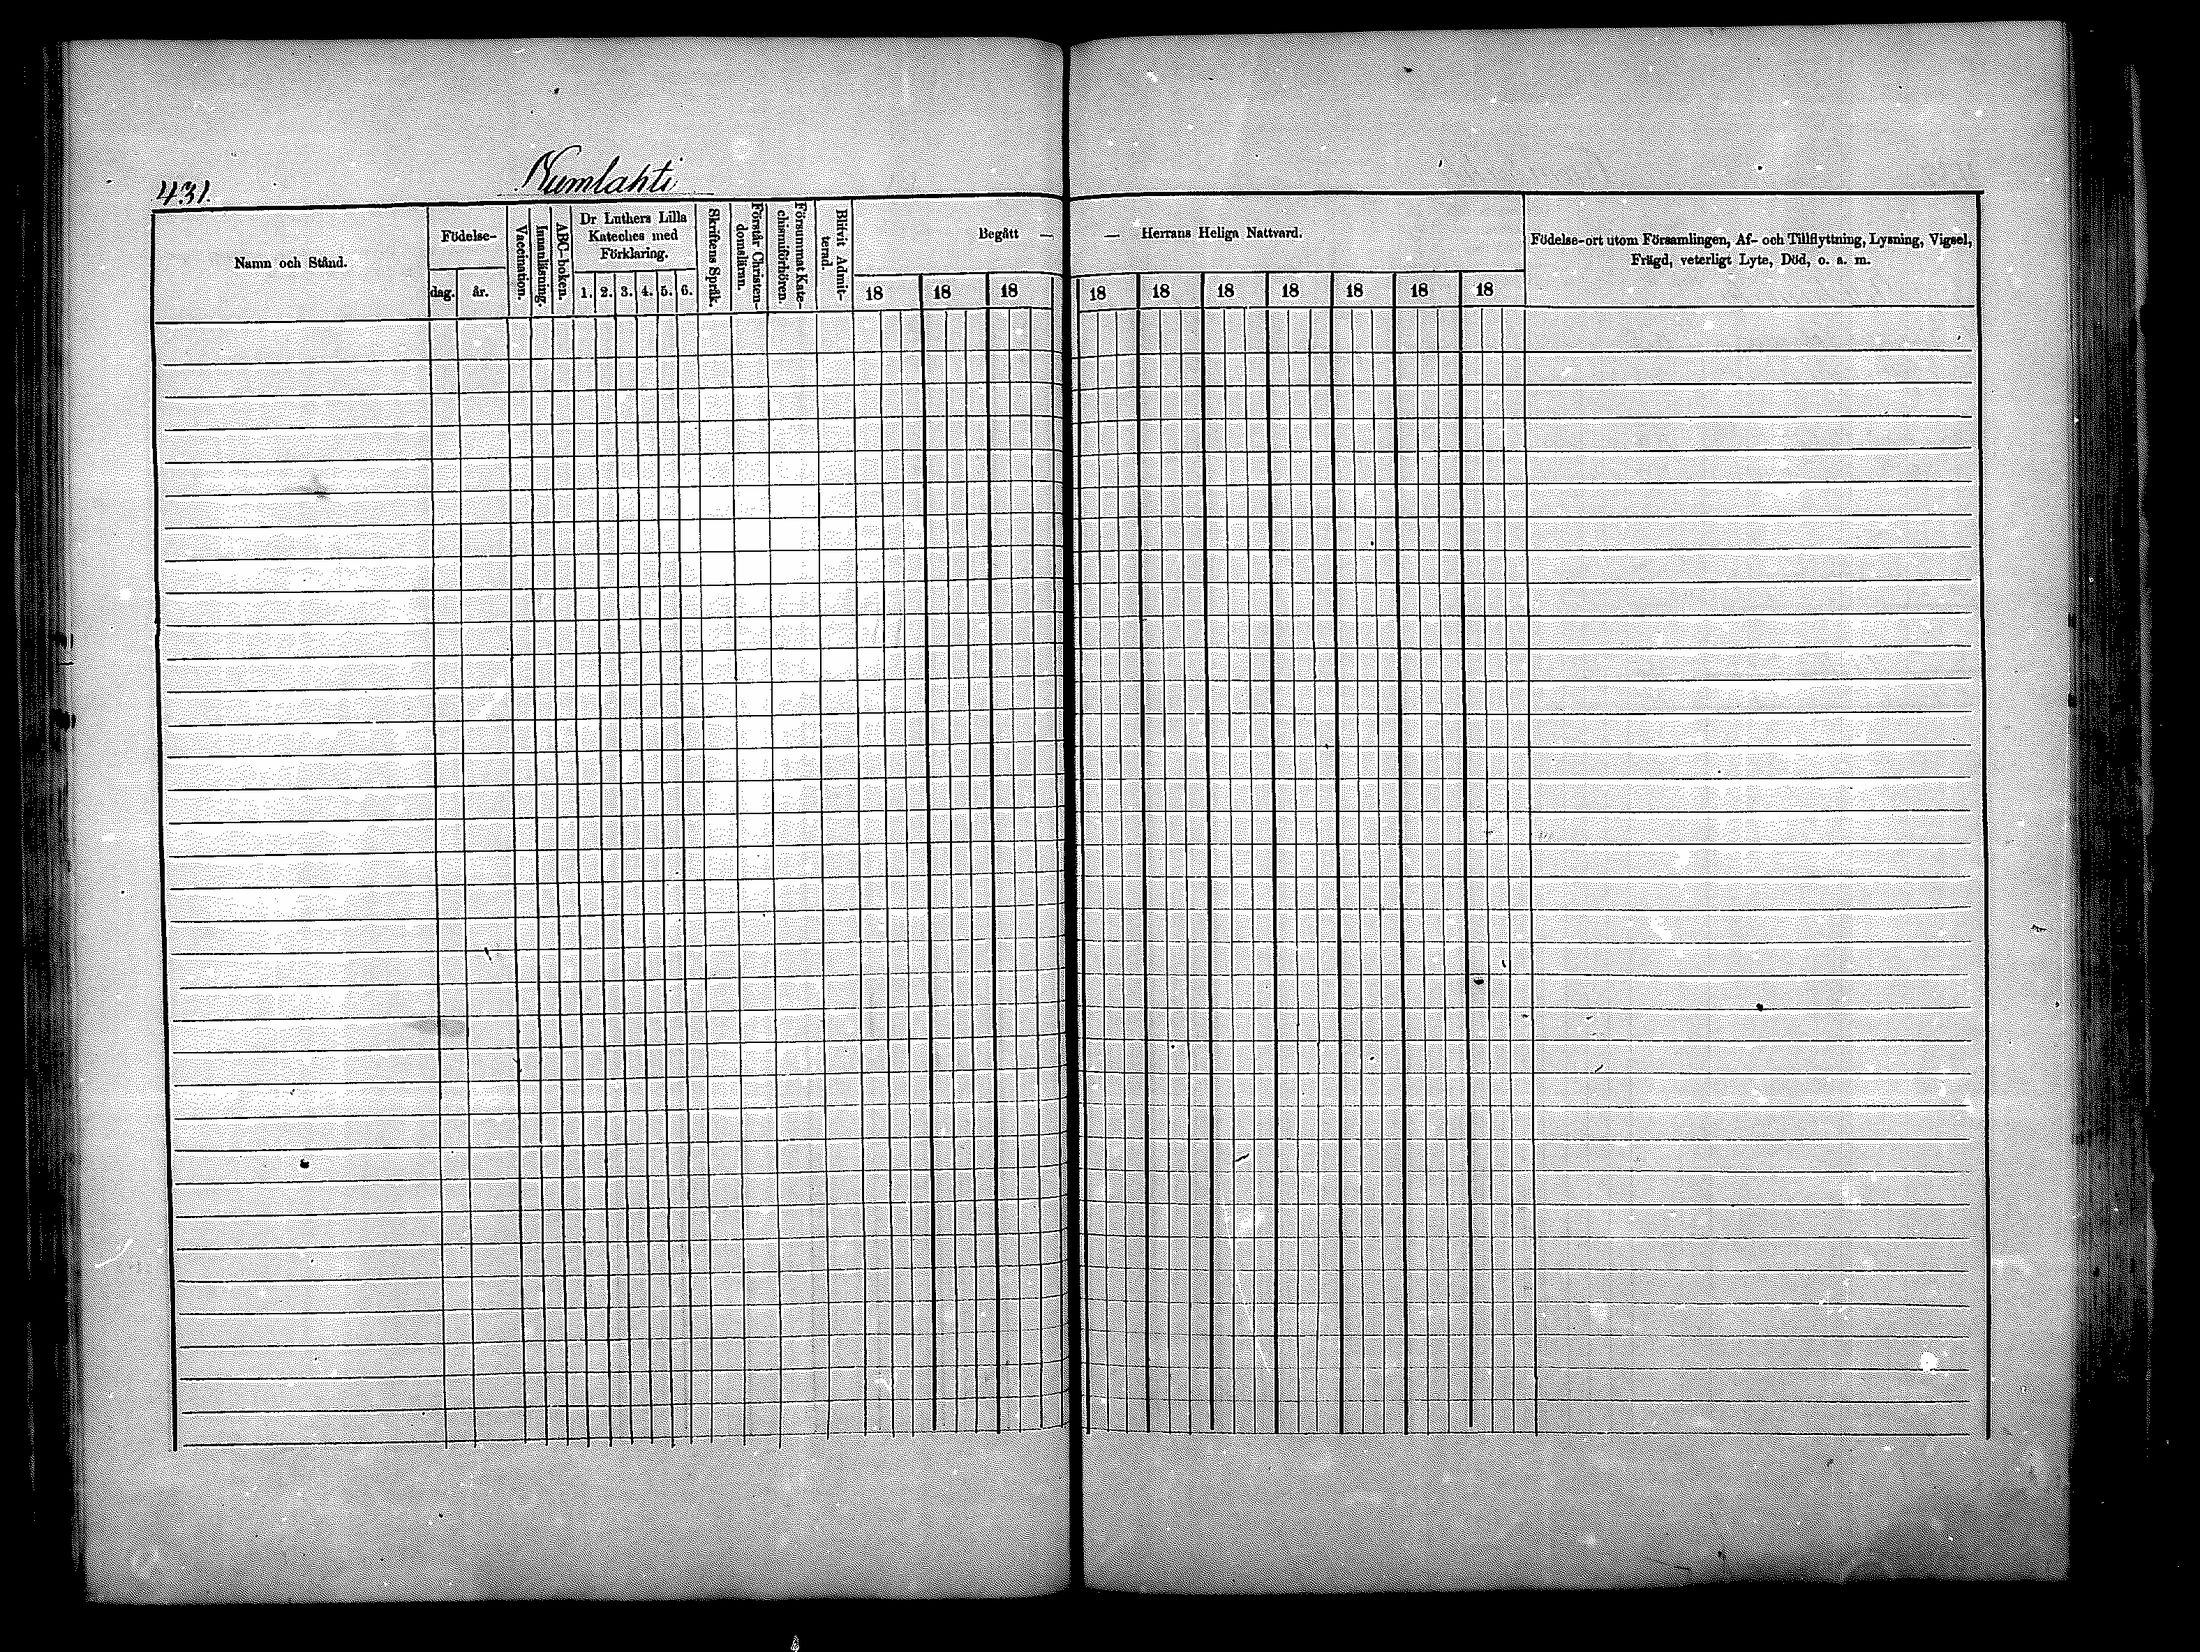 431.
Kumlahti
Namn och Stånd.
Födelse-
dag.
år.
Vaccination.
Innanläsning.
ABC-boken.
Dr Luthers Lilla
Kateches med
Förklaring.
1. 2. 3. 4. 5. 6.
Skriftens Språk.
Förstår Christen-
domsläran.
Försummat Kate-
chismiförhören.
Blifvit Admit-
terad.
Begått — — Herrans Heliga Nattvard.
18 18 18 18 18 18 18 18 18 18
Födelse-ort utom Församlingen, Af- och Tillflyttning, Lysning, Vigsel,
Frägd, veterligt Lyte, Död, o. a. m.